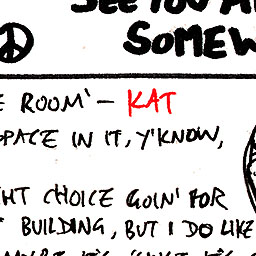 SEE YOU
SOMEW
E ROOM' – KAT
SPACE IN IT, Y'KNOW,
HT CHOICE GOIN' FOR
BUILDING, BUT I DO LIKE